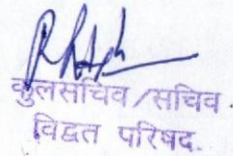 कुलसचिव/सचिव
विद्वत परिषद.